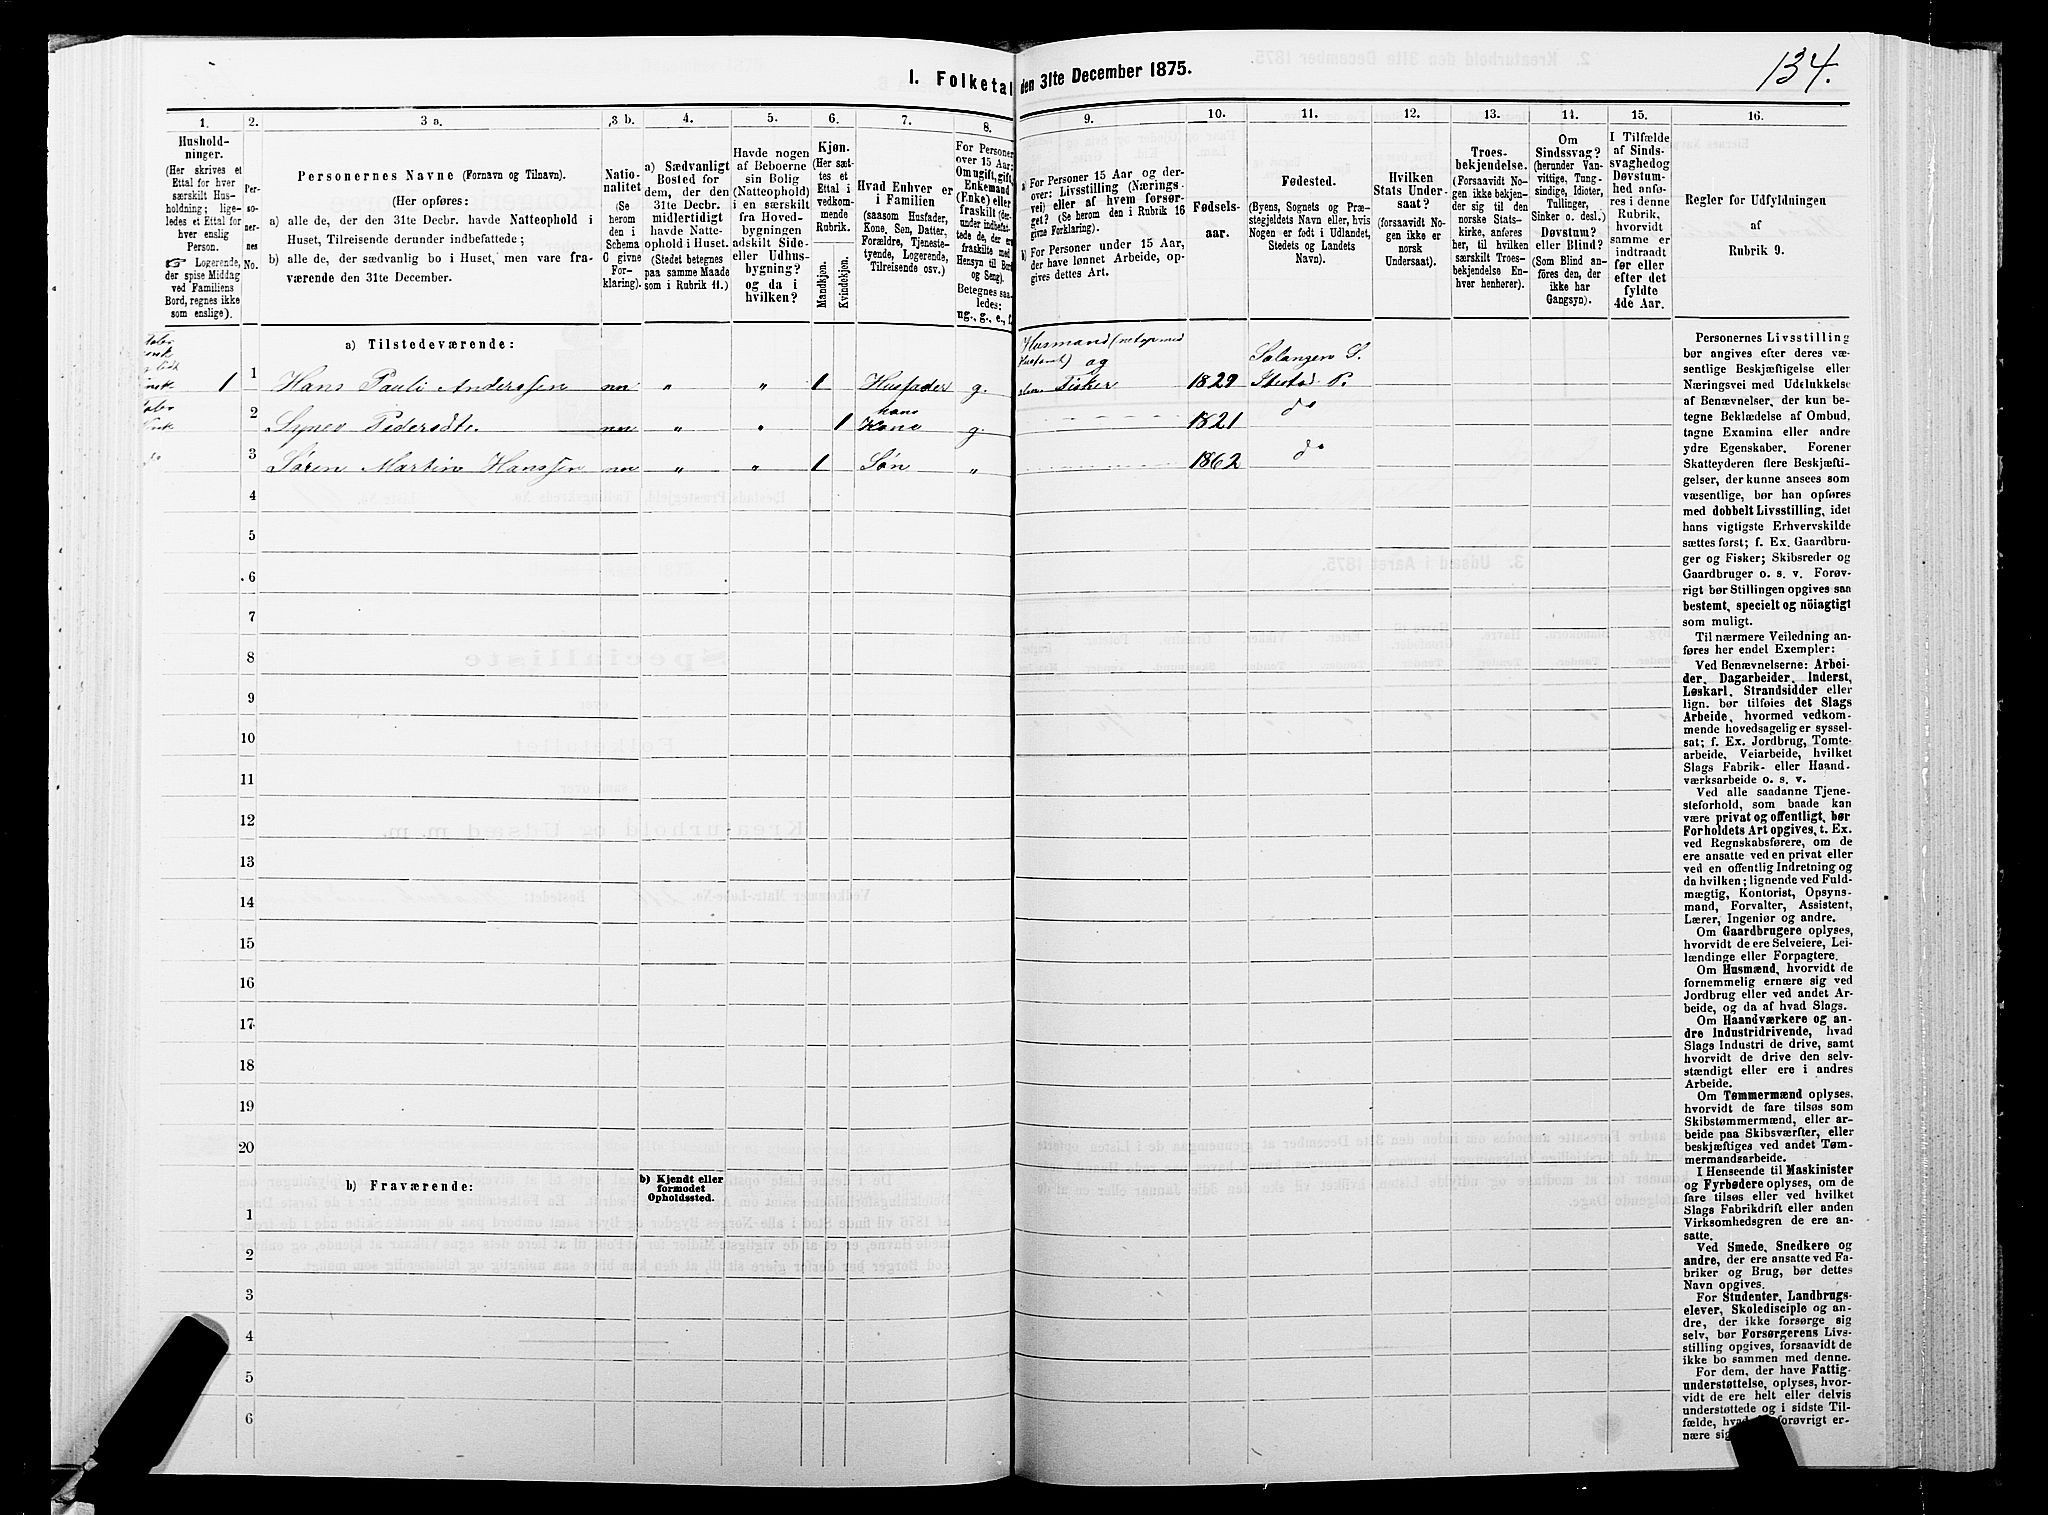 134.
I. Folketal den 31te December 1875.
1.
Hushold-
ninger.
(Her skrives et
Ettal for hver
særskilt Hus-
holdning; lige-
ledes et Ettal for
hver enslig
Person.
☞ Logerende,
der spise Middag
ved Familiens
Bord, regnes ikke
som enslige).
2.
Per-
so-
ner-
nes
No.
3 a.
Personernes Navne (Fornavn og Tilnavn).
(Her opføres:
a) alle de, der den 31te Decbr. havde Natteophold i
Huset, Tilreisende derunder indbefattede;
b) alle de, der sædvanlig bo i Huset, men vare fra-
værende den 31te December.
3 b.
Natio-
nalitet
(Se
herom
den i
Schema
C givne
For-
klaring).
4.
a) Sædvanligt
Bosted for
dem, der den
31te Decbr.
midlertidigt
havde Natte-
ophold i Huset.
(Stedet betegnes
paa samme Maade
som i Rubrik 11.)
5.
Havde nogen
af Beboerne
sin Bolig
(Natteophold)
i en særskilt
fra Hoved-
bygningen
adskilt Side-
eller Udhus-
bygning?
og da i
hvilken?
6.
Kjøn.
(Her sæt-
tes et
Ettal i
vedkom-
mende
Rubrik.
Mandkjøn.
Kvindekjøn.
7.
Hvad Enhver er
i Familien
(saasom Husfader,
Kone, Søn, Datter,
Forældre, Tjeneste-
tyende, Logerende,
Tilreisende osv.)
8.
For Personer
over 15 Aar:
Om ugift, gift,
Enkemand
(Enke) eller
fraskilt (der-
under indbefat-
tede de, der er
fraskilte med
Hensyn til Bord
og Seng).
Betegnes saa-
ledes:
ug., g., e., f.
9.
a) For Personer 15 Aar og der-
over: Livsstilling (Nærings-
vei) eller af hvem forsør-
get? (Se herom den i Rubrik 16
givne Forklaring).
b) For Personer under 15 Aar,
der have lønnet Arbeide, op-
gives dettes Art.
10.
Fødsels-
aar.
11.
Fødested.
(Byens, Sognets og Præ-
stegjeldets Navn eller, hvis
Nogen er født i Udlandet,
Stedets og Landets
Navn).
12.
Hvilken
Stats Under-
saat?
(forsaavidt No-
gen ikke er
norsk
Undersaat).
13.
Troes-
bekjendelse.
(Forsaavidt No-
gen ikke bekjen-
der sig til den
norske Stats-
kirke, anføres
her, til hvilken
særskilt Troes-
bekjendelse En-
hver henhører).
14.
Om
Sindssvag?
(herunder Van-
vittige, Tung-
sindige, Idioter,
Tullinger,
Sinker o. desl.)
Døvstum?
eller Blind?
(Som Blind an-
føres den, der
ikke har
Gangsyn).
15.
I Tilfælde
af Sinds-
svaghed og
Døvstum-
hed anfø-
res i denne
Rubrik,
hvorvidt
samme er
indtraadt
før eller
efter det
fyldte
4de Aar.
16.
Regler for Udfyldningen
af
Rubrik 9.
a) Tilstedeværende:
1 1 Hans Pauli Anderssen nn " " 1 Husfader g. Husmand og Fisker 1829 Salangen S. Ibestad P.
2 Synev Pedersdtr. nn " " 1 hans Kone g. 1821 do
3 Søren Martin Hanssen nn " " 1 Søn " 1862 do
4
5
6
7
8
9
10
11
12
13
14
15
16
17
18
19
20
b) Fraværende:
b) Kjendt eller
formodet
Opholdssted.
1
2
3
4
5
6
Personernes Livsstilling
bør angives efter deres væ-
sentlige Beskjæftigelse eller
Næringsvei med Udelukkelse
af Benævnelser, der kun be-
tegne Beklædelse af Ombud,
tagne Examina eller andre
ydre Egenskaber. Forener
Skatteyderen flere Beskjæfti-
gelser, der kunne ansees som
væsentlige, bør han opføres
med dobbelt Livsstilling, idet
hans vigtigste Erhvervskilde
sættes først; f. Ex. Gaardbru-
ger og Fisker; Skibsreder og
Gaardbruger o. s. v. Forøv-
rigt bør Stillingen opgives saa
bestemt, specielt og nöiagtigt
som muligt.
Til nærmere Veiledning an-
føres her endel Exempler:
Ved Benævnelserne: Arbei-
der, Dagarbeider, Inderst,
Løskarl, Strandsidder eller
lign. bør tilføies det Slags
Arbeide, hvormed vedkom-
mende hovedsagelig er syssel-
sat; f. Ex. Jordbrug, Tomte-
arbeide, Veiarbeide, hvilket
Slags Fabrik- eller Haand-
værksarbeide o. s. v.
Ved alle saadanne Tjene-
steforhold, som baade kan
være privat og offentligt, bør
Forholdets Art opgives, t. Ex.
ved Regnskabsførere, om de
ere ansatte ved en privat eller
ved en offentlig Indretning og
da hvilken; lignende ved Fuld-
mægtig, Kontorist, Opsyns-
mand, Forvalter, Assistent,
Lærer, Ingeniør og andre.
Om Gaardbrugere oplyses,
hvorvidt de ere Selveiere, Lei-
lændinge eller Forpagtere.
Om Husmænd, hvorvidt de
fornemmelig ernære sig ved
Jordbrug eller ved andet Ar-
beide, og da af hvad Slags.
Om Haandværkere og an-
dre Industridrivende, hvad
Slags Industri de drive, samt
hvorvidt de drive den selv-
stændigt eller ere i andres
Arbeide.
Om Tømmermænd oplyses,
hvorvidt de fare tilsøs som
Skibstømmermænd, eller ar-
beide paa Skibsværfter, eller
beskjæftiges ved andet Tøm-
mermandsarbeide.
I Henseende til Maskinister
og Fyrbødere oplyses, om de
fare tilsøs eller ved hvilket
Slags Fabrikdrift eller anden
Virksomhedsgren de ere an-
satte.
Ved Smede, Snedkere og
andre, der ere ansatte ved Fa-
briker og Brug, bør dettes
Navn opgives.
For Studenter, Landbrugs-
elever, Skoledisciple og an-
dre, der ikke forsørge sig
selv, bør Forsørgerens Livs-
stilling opgives, forsaavidt de
ikke bo sammen med denne.
For dem, der have Fattig-
understøttelse, oplyses, hvor-
vidt de ere helt eller delvis
understøttede og i sidste Til-
fælde, hvad forøvrigt er-
nære sig